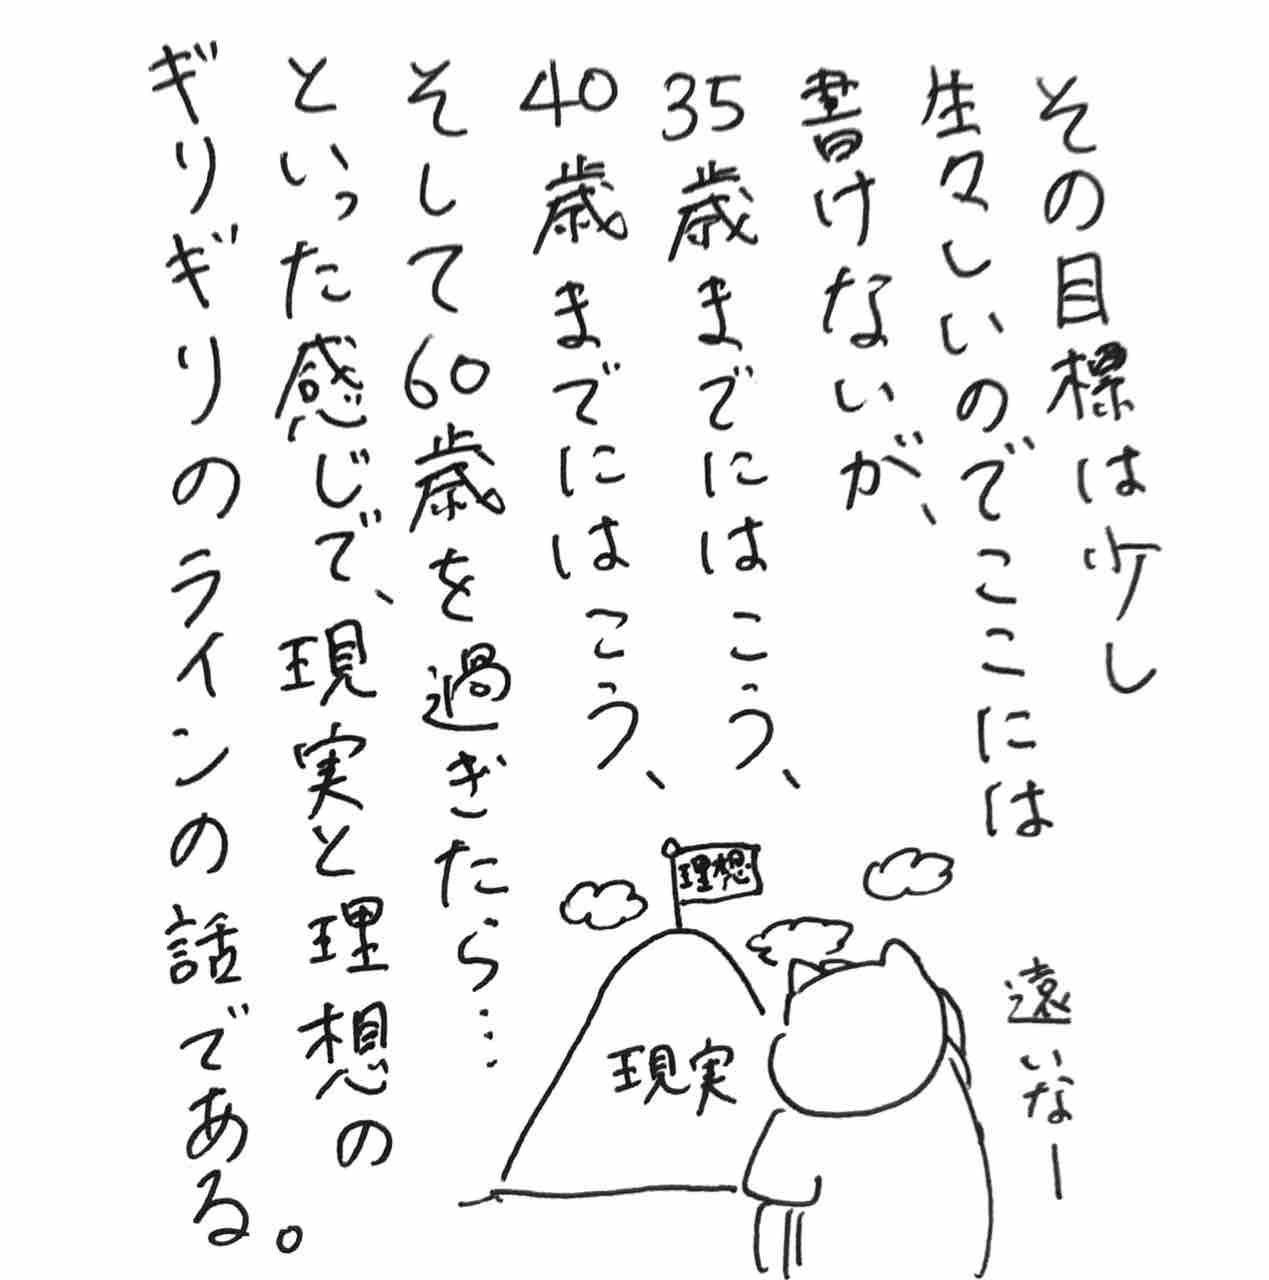 その目標は少し
生々しいのでここには
書けないが、
35歳までにはこう、
40歳までにはこう、
そして60歳を過ぎたら…
といった感じで、現実と理想の
ギリギリのラインの話である。
遠いなー
理想
現実